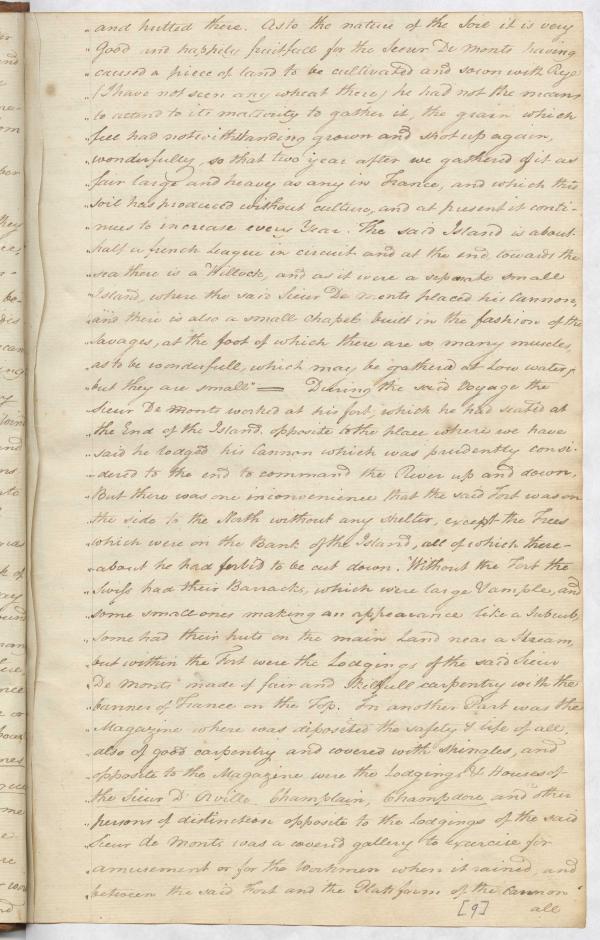 "and hutted there. As to the nature of the Soil it is very
"Good and happily fruitfull for the Sieur De Monts having
"caused a piece of land to be cultivated and sown with Rye
"(I have not seen any wheat there) he had not the means
"to attend to its maturity to gather it, the grain which
"fell had notwithstanding grown and shot up again,
"wonderfully, so that two year after we gathered of it as
"fair large and heavy as any in France, and which this
"soil has produced without culture, and at present it conti-
"nues to increase every Year. The said Island is about
"half a french League in circuit and at the end towards the
"sea there is a Hillock, and as it were a seperate small
"Island, where the said Sieur De Monts placed his Cannon,
"and there is also a small chapel built in the fashion of the
"Savages, at the foot of which there are so many muscles,
"as to be wonderfull, which may be gathered at Low water,
"but they are small" — During the said Voyage the
"Sieur De Monts worked at his fort, which he had seated at
"the End of the Island opposite to the place where we have
"said he lodged his Cannon which was prudently consi-
"dered to the end to command the River up and down.
"But there was one inconvenience that the said Fort was on
"the side to the North without any shelter, except the Trees
"which were on the Bank of the Island, all of which there-
"about he had forbid to be cut down. Without the Fort the
"Swiss had their Barracks, which were large &ample, and
"some small ones making an appearance like a Suburb,
"Some had their huts on the main Land near a Stream,
"but within the Fort were the Lodgings of the said Sieur
"De Monts made of fair and Skilfull carpentry with the
"banner of France on the Top. In another Part was the
"Magazine where was deposited the safety & life of all,
"also of good carpentry and covered with Shingles, and
"opposite to the Magazine were the Lodgings & Houses of
"the Sieur D'Orville Champlain, Champdore and other
"persons of distinction opposite to the Lodgings of the said
"Sieur de Monts was a covered gallery to exercise for
"amusement or for the Workmen when it rained, and
"between the said Fort and the Platform of the Cannon
[9] all